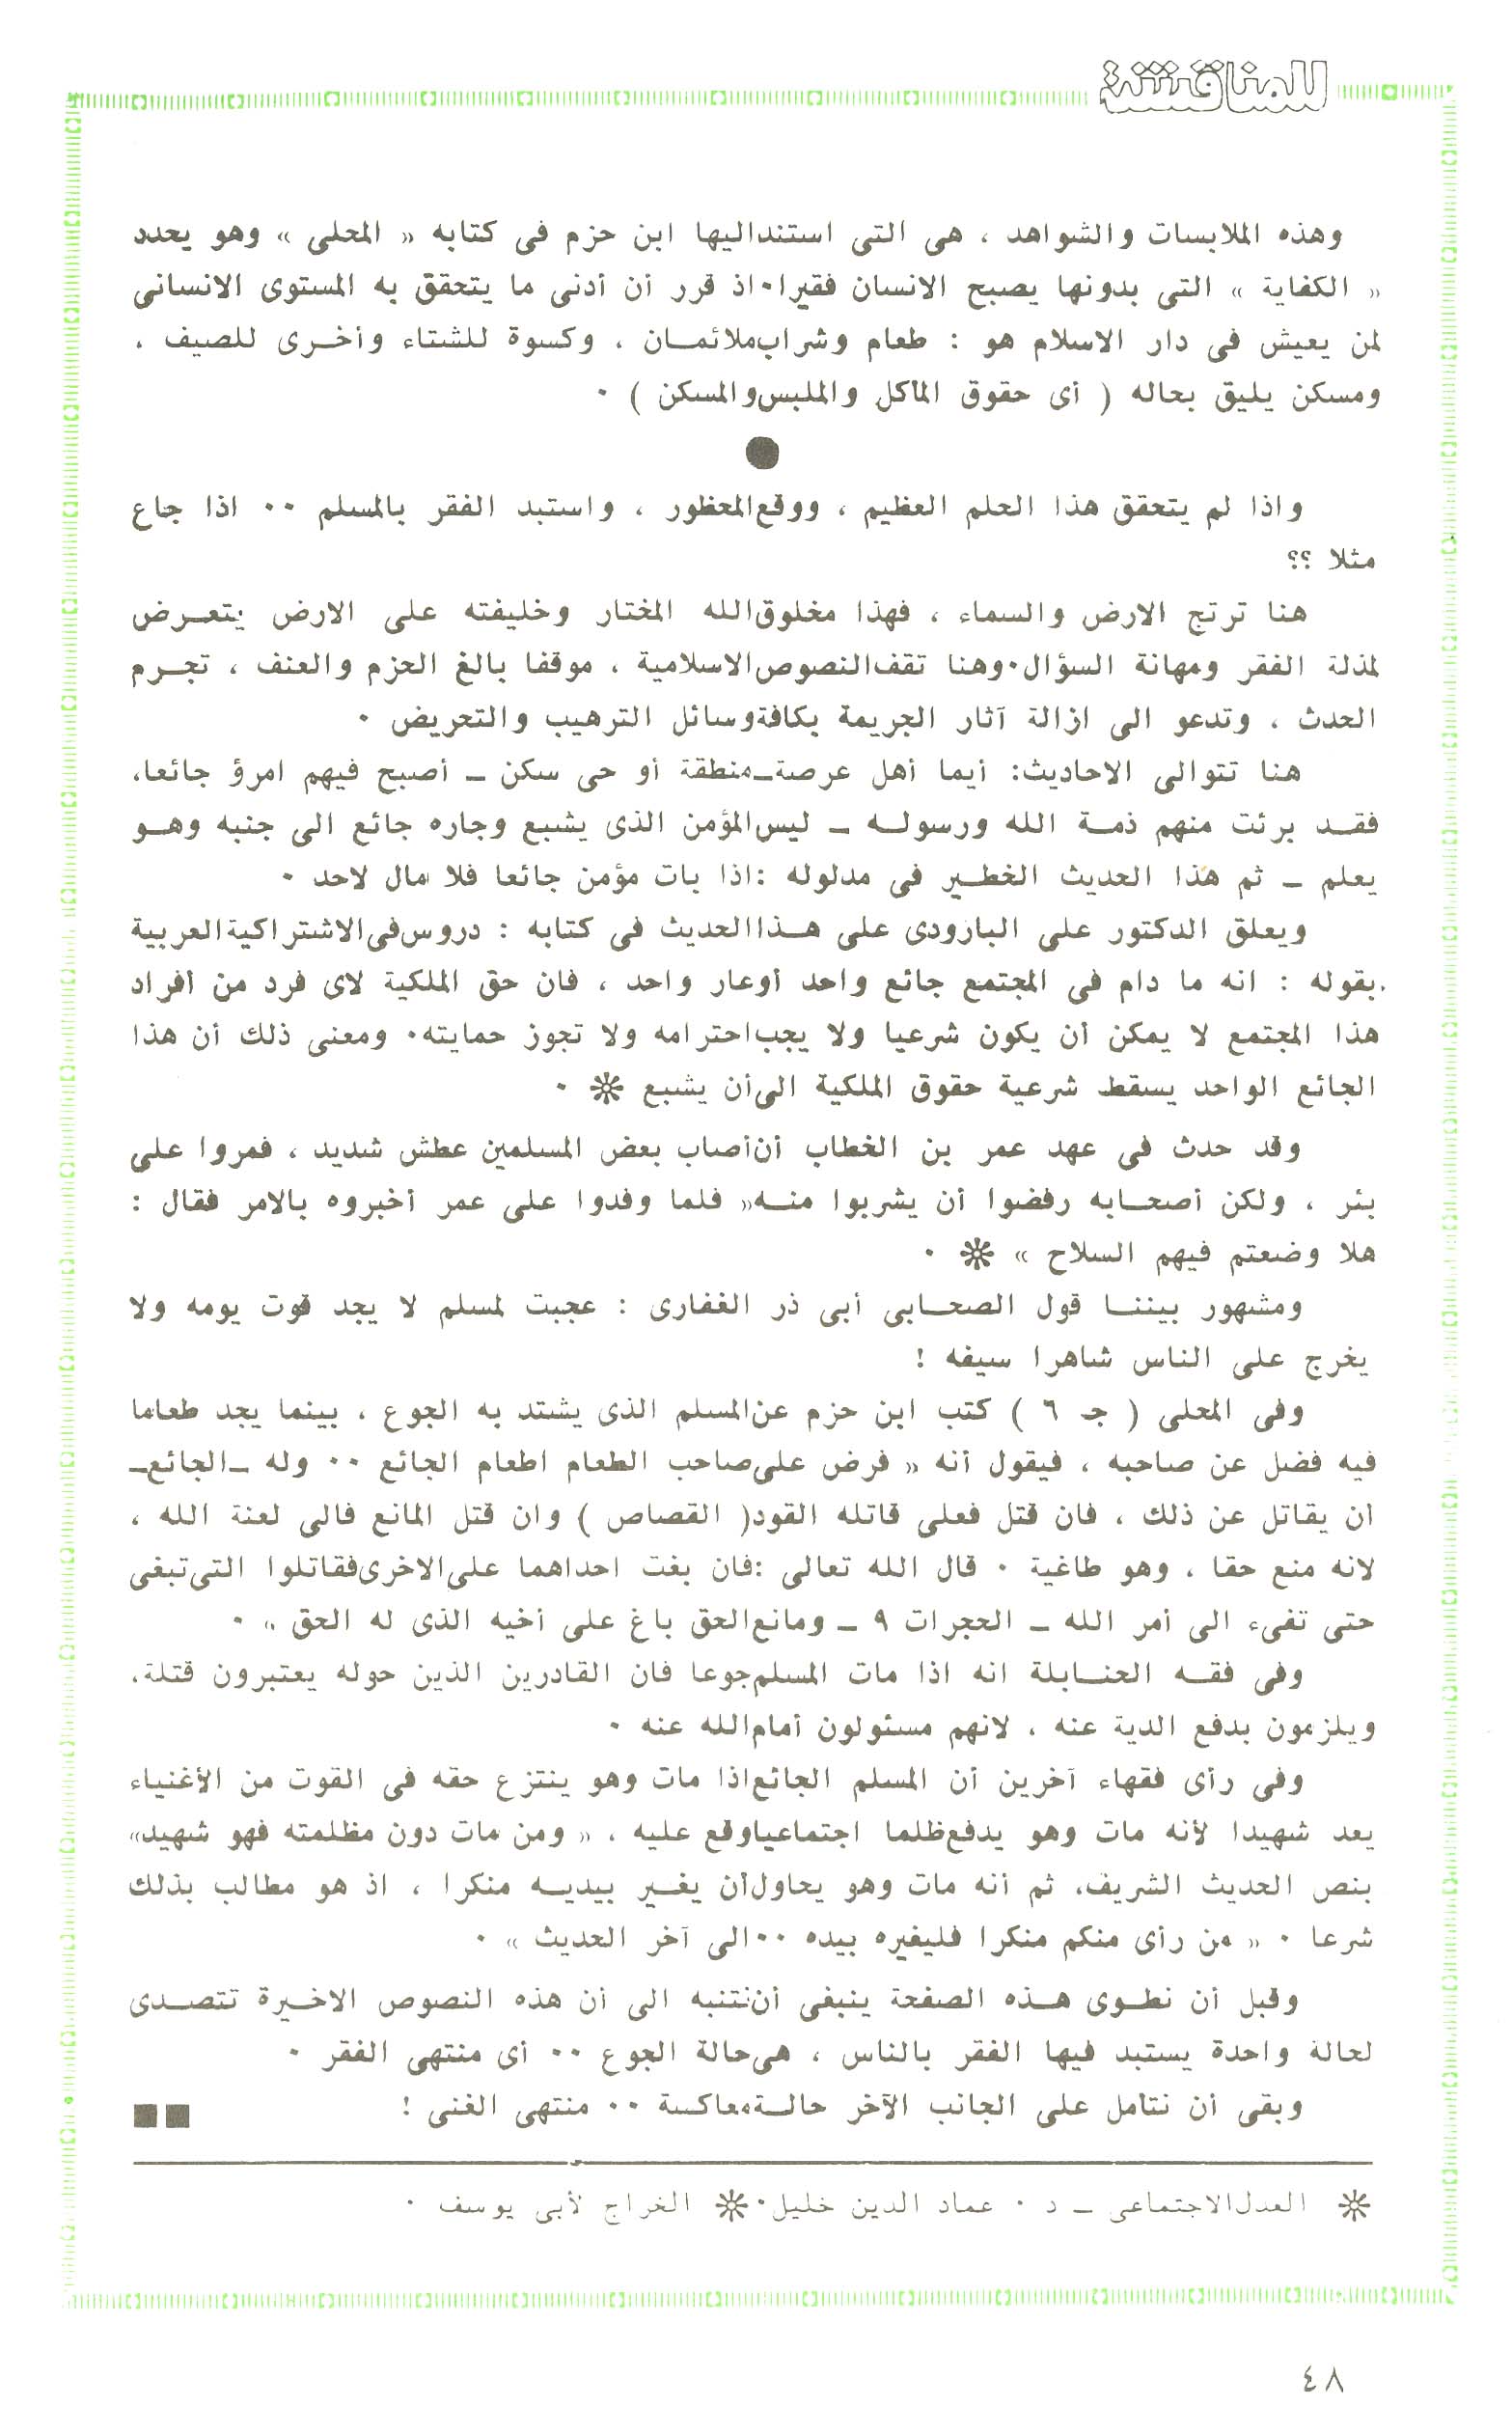 للمناقشة
وهذه الملابسات والشواهد ، هى التى استنداليها ابن حزم فى كتابه « المحلى » وهو يحدد
« الكفاية » التى بدونها يصبح الانسان فقيرا٠اذ قرر أن أدنى ما يتحقق به المستوى الانسانى
لمن يعيش فى دار الاسلام هو : طعام وشراب ملائمان ، وكسوة للشتاء وأخرى للصيف ،
ومسكن يليق بحاله ( أى حقوق المأكل والملبس والمسكن ) ٠
●
واذا لم يتحقق هذا الحلم العظيم ، ووقع المحظور ، واستبد الفقر بالمسلم ٠٠ اذا جاع
مثلا ؟؟
هنا ترتج الارض والسماء ، فهذا مخلوق الله المختار وخليفته على الارض يتعرض
لمذلة الفقر ومهانة السؤال٠وهنا تقف النصوص الاسلامية ، موقفا بالغ الحزم والعنف ، تجرم
الحدث ، وتدعو الى ازالة آثار الجريمة بكافة وسائل الترهيب والتحريض ٠
هنا تتوالى الاحاديث: أيما أهل عرصة_منطقة أو حى سكن _ أصبح فيهم امرؤ جائعا،
فقد برئت منهم ذمة الله ورسوله _ ليس المؤمن الذى يشبع وجاره جائع الى جنبه وهو
يعلم _ ثم هذا الحديث الخطير فى مدلوله :اذا بات مؤمن جائعا فلا مال لاحد ٠
ويعلق الدكتور على البارودى على هذا الحديث فى كتابه : دروس فى الاشتراكية العربية
بقوله : انه ما دام فى المجتمع جائع واحد أوعار واحد ، فان حق الملكية لاى فرد من أفراد
هذا المجتمع لا يمكن أن يكون شرعيا ولا يجب احترامه ولا تجوز حمايته٠ ومعنى ذلك أن هذا
الجائع الواحد يسقط شرعية حقوق الملكية الى أن يشبع ❊ ٠
وقد حدث فى عهد عمر بن الخطاب أن أصاب بعض المسلمين عطش شديد ، فمروا على
بئر ، ولكن أصحابه رفضوا أن يشربوا منه« فلما وفدوا على عمر أخبروه بالامر فقال :
هلا وضعتم فيهم السلاح » ❊ ٠
ومشهور بيننا قول الصحابى أبى ذر الغفارى : عجبت لمسلم لا يجد قوت يومه ولا
يخرج على الناس شاهرا سيفه !
وفى المحلى ( جـ ٦ ) كتب ابن حزم عن المسلم الذى يشتد به الجوع ، بينما يجد طعاما
فيه فضل عن صاحبه ، فيقول أنه « فرض على صاحب الطعام اطعام الجائع ٠٠ وله _الجائع_
ان يقاتل عن ذلك ، فان قتل فعلى قاتله القود( القصاص ) وان قتل المانع فالى لعنة الله ،
لانه منع حقا ، وهو طاغية ٠ قال الله تعالى :فان بغت احداهما على الاخرى فقاتلوا التى تبغى
حتى تفىء الى أمر الله _ الحجرات ٩ _ ومانع الحق باغ على أخيه الذى له الحق » ٠
وفى فقه الحنابلة انه اذا مات المسلم جوعا فان القادرين الذين حوله يعتبرون قتلة،
ويلزمون بدفع الدية عنه ، لانهم مسئولون أمام الله عنه ٠
وفى رأى فقهاء آخرين أن المسلم الجائع اذا مات وهو ينتزع حقه فى القوت من الأغنياء
يعد شهيدا لأنه مات وهو يدفع ظلما اجتماعيا وقع عليه ، « ومن مات دون مظلمته فهو شهيد»
بنص الحديث الشريف، ثم أنه مات وهو يحاول أن يغير بيديه منكرا ، اذ هو مطالب بذلك
شرعا ٠ « من رأى منكم منكرا فليغيره بيده ٠٠الى آخر الحديث » ٠
وقبل أن نطوى هذه الصفحة ينبغى أن نتنبه الى أن هذه النصوص الاخيرة تتصدى
لحالة واحدة يستبد فيها الفقر بالناس ، هى حالة الجوع ٠٠ أى منتهى الفقر ٠
وبقى أن نتأمل على الجانب الآخر حالة معاكسة ٠٠ منتهى الغنى ! ■■
❊ العدل الاجتماعى _ د ٠ عماد الدين خليل٠ ❊ الخراج لأبى يوسف ٠
٤٨